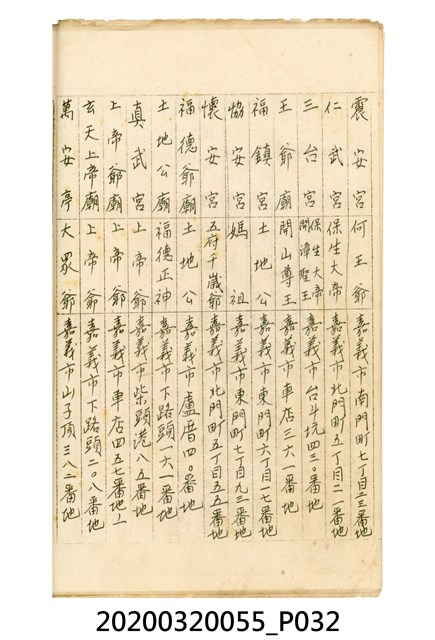 震安宮 何王爺 嘉義市南門町七丁目二三番地
仁武宮 保生大帝 嘉義市北門町五丁目二一番地
三台宮 保生大帝 開漳聖王 嘉義市台斗坑四三〇番地
王爺廟 開山尊王 嘉義市車店三六一番地
福鎮宮 土地公 嘉義市東門町六丁目一七番地
協安宮 媽祖 嘉義市東門町七丁目九三番地
懷安宮 五府千歲爺 嘉義市北門町五丁目五五番地
福德爺廟 土地公 嘉義市盧厝四〇番地
土地公廟 福德正神 嘉義市下路頭一六一番地
真武宮 上帝爺 嘉義市柴頭港八五番地
上帝爺廟 上帝爺 嘉義市車店四五七番地ノ一
玄天上帝廟 上帝爺 嘉義市下路頭二〇八番地
萬安亭 大眾爺 嘉義市山子頂三八二番地
20200320055_P032